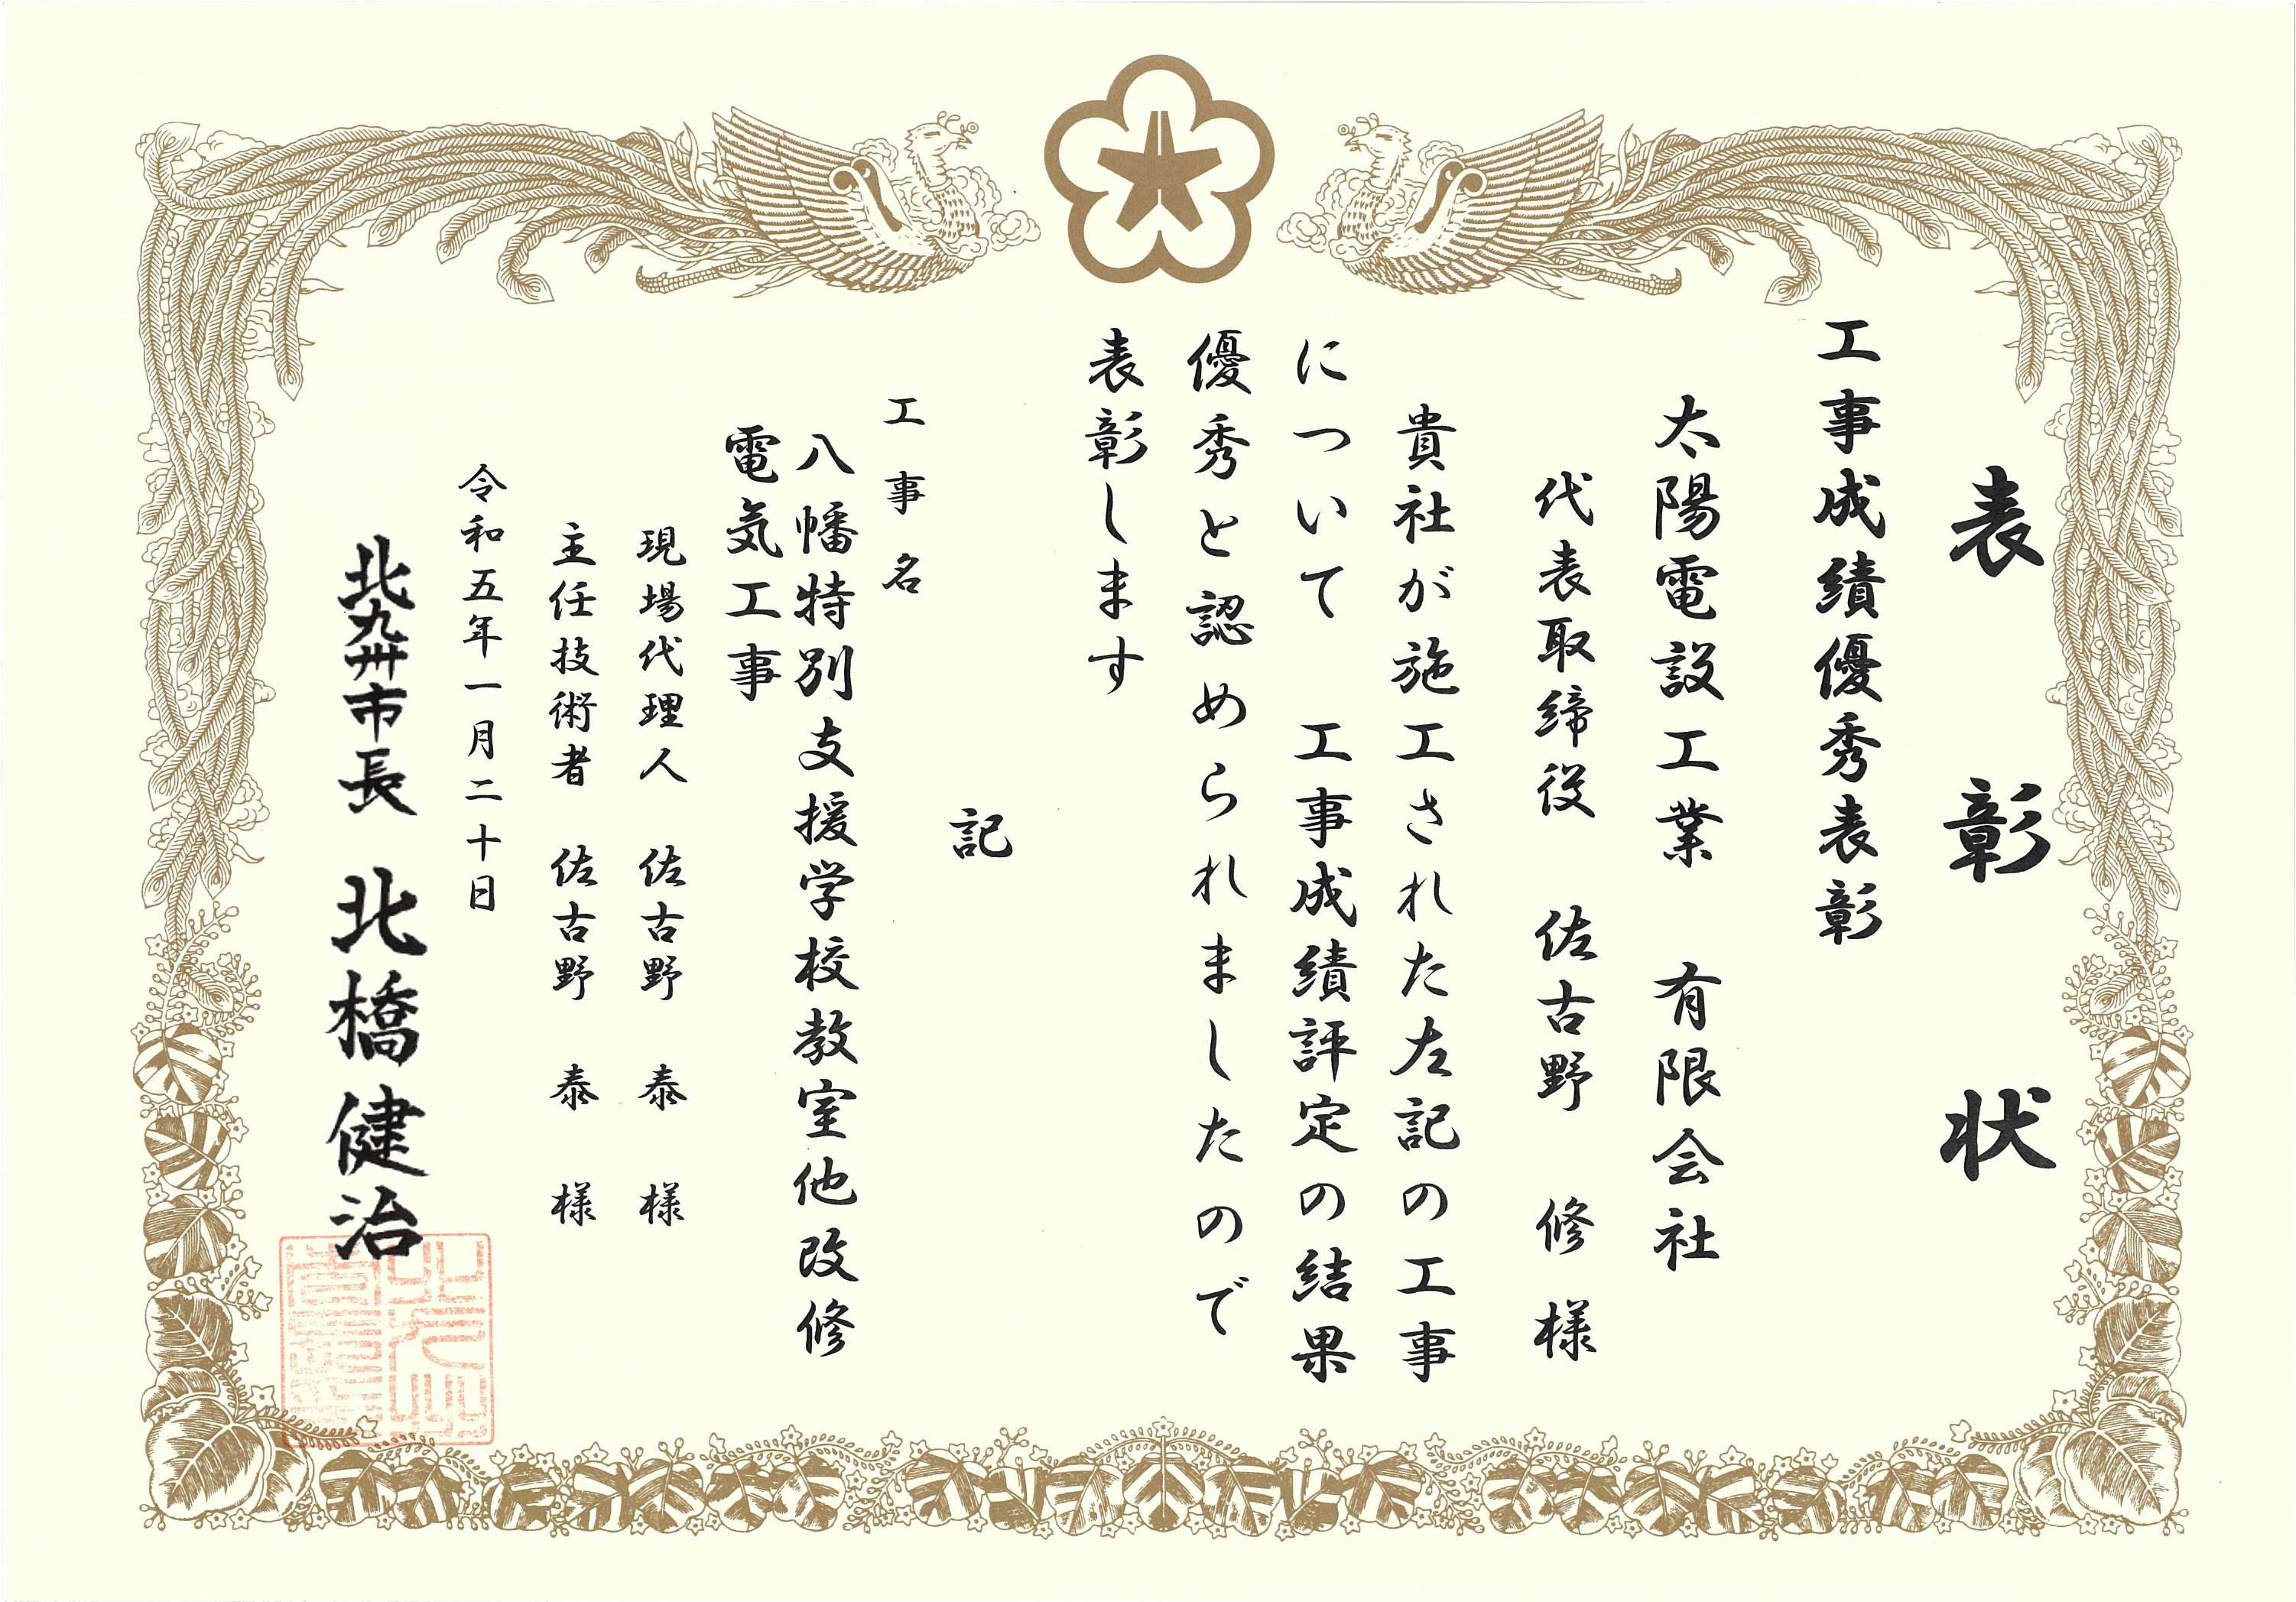 表彰状
工事成績優秀表彰
太陽電設工業　有限会社
代表取締役　佐古野　修　様
貴社が施工された左記の工事
について　工事成績評定の結果
優秀と認められましたので
表彰します
記
工事名
八幡特別支援学校教室他改修
電気工事
現場代理人　佐古野　泰　様
主任技術者　佐古野　泰　様
令和五年一月二十日
北九州市長　北橋健治